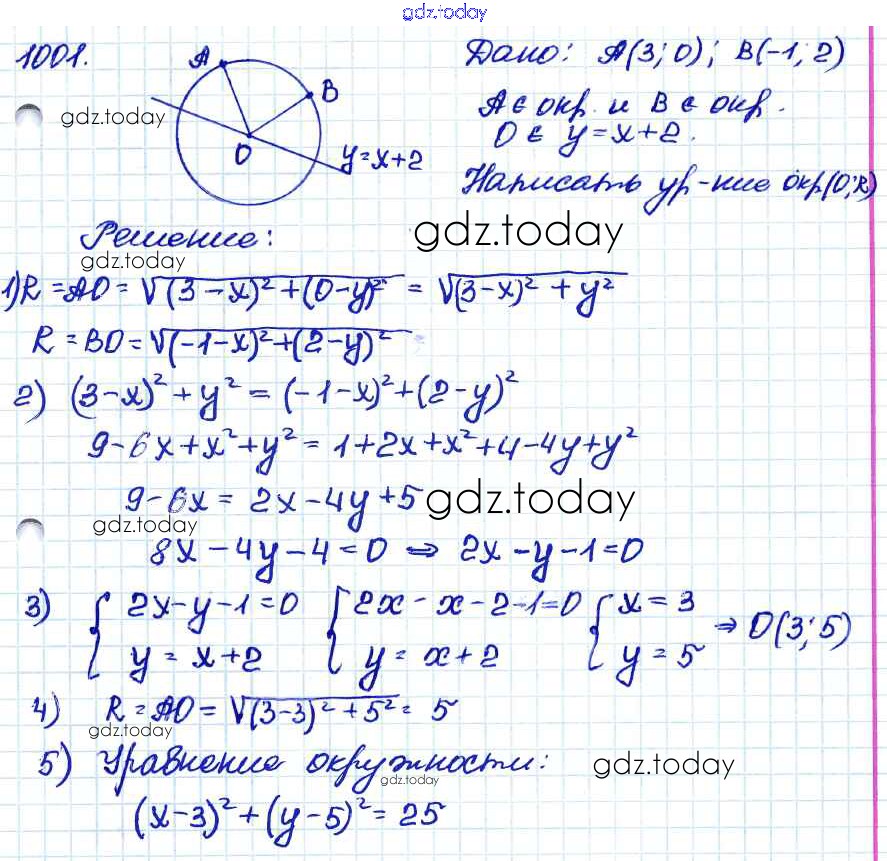 gdz.today
1001.
A
B
O
y=x+2
gdz.today
Дано: A(3; 0); B(-1; 2)
A ∈ окр. и B ∈ окр.
O ∈ y = x+2.
Написать ур-ние окр(O; R)
Решение:
gdz.today
gdz.today
1) R = AO = √(3-x)² + (0-y)² = √(3-x)² + y²
R = BO = √(-1-x)² + (2-y)²
2) (3-x)² + y² = (-1-x)² + (2-y)²
9-6x+x²+y² = 1+2x+x²+4-4y+y²
9-6x = 2x-4y+5
gdz.today
gdz.today
8x-4y-4=0 ⇒ 2x-y-1=0
3) { 2x-y-1=0 { 2x-x-2-1=0 { x=3
y=x+2 y=x+2 y=5 ⇒ O(3; 5)
4) R = AO = √(3-3)² + 5² = 5
gdz.today
5) Уравнение окружности:
gdz.today
gdz.today
(x-3)² + (y-5)² = 25